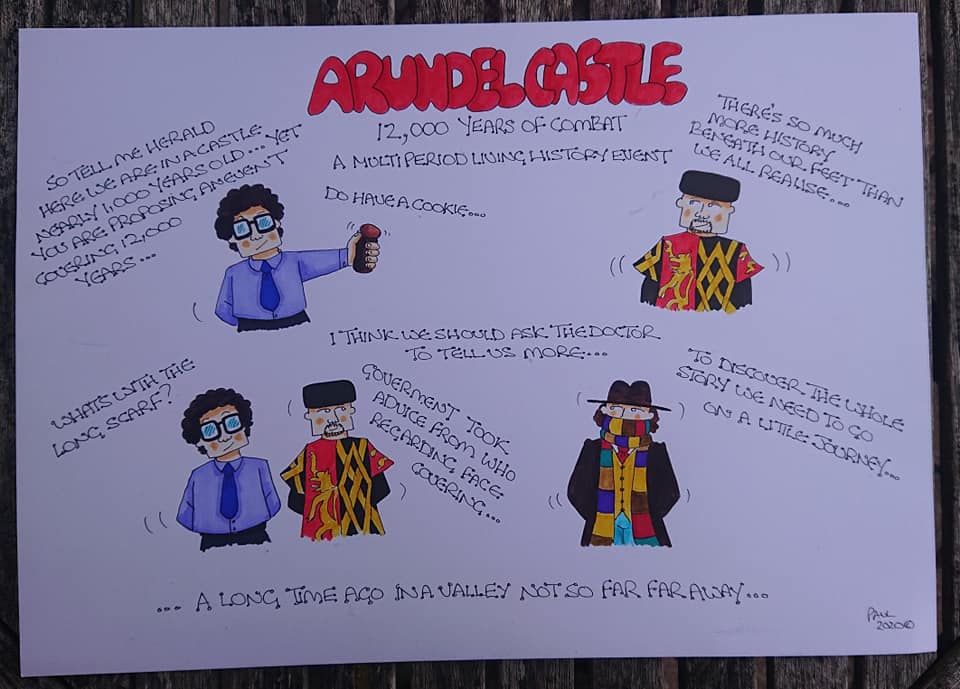 ARUNDEL CASTLE
12,000 YEARS OF COMBAT
A MULTI PERIOD LIVING HISTORY EVENT
SO TELL ME HERALD
HERE WE ARE IN A CASTLE
NEARLY 1,000 YEARS OLD... YET
YOU ARE PROPOSING AN EVENT
COVERING 12,000
YEARS...
DO HAVE A COOKIE...
THERE'S SO MUCH
MORE HISTORY
BENEATH OUR FEET THAN
WE ALL REALISE....
I THINK WE SHOULD ASK THE DOCTOR
TO TELL US MORE...
WHATS WITH THE
LONG SCARF?
GOVERMENT TOOK
ADVICE FROM WHO
REGARDING FACE
COVERING...
TO DISCOVER THE WHOLE
STORY WE NEED TO GO
ON A LITTLE JOURNEY...
... A LONG TIME AGO IN A VALLEY NOT SO FAR FAR AWAY...
PAUL
2020©